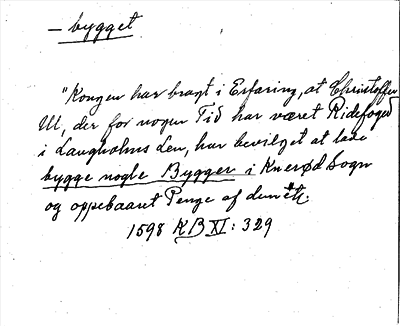 — bygget
"Kongen har bragt i Erfaring, at Christoffer
Ut, der for nogen Tid har været Ridefoged
i Laugholms Len, har bevilget at lade
bygge nogle Bygger i Knerød Sogn
og oppebaaret Penge af dem etc.
1598 KB XI: 329